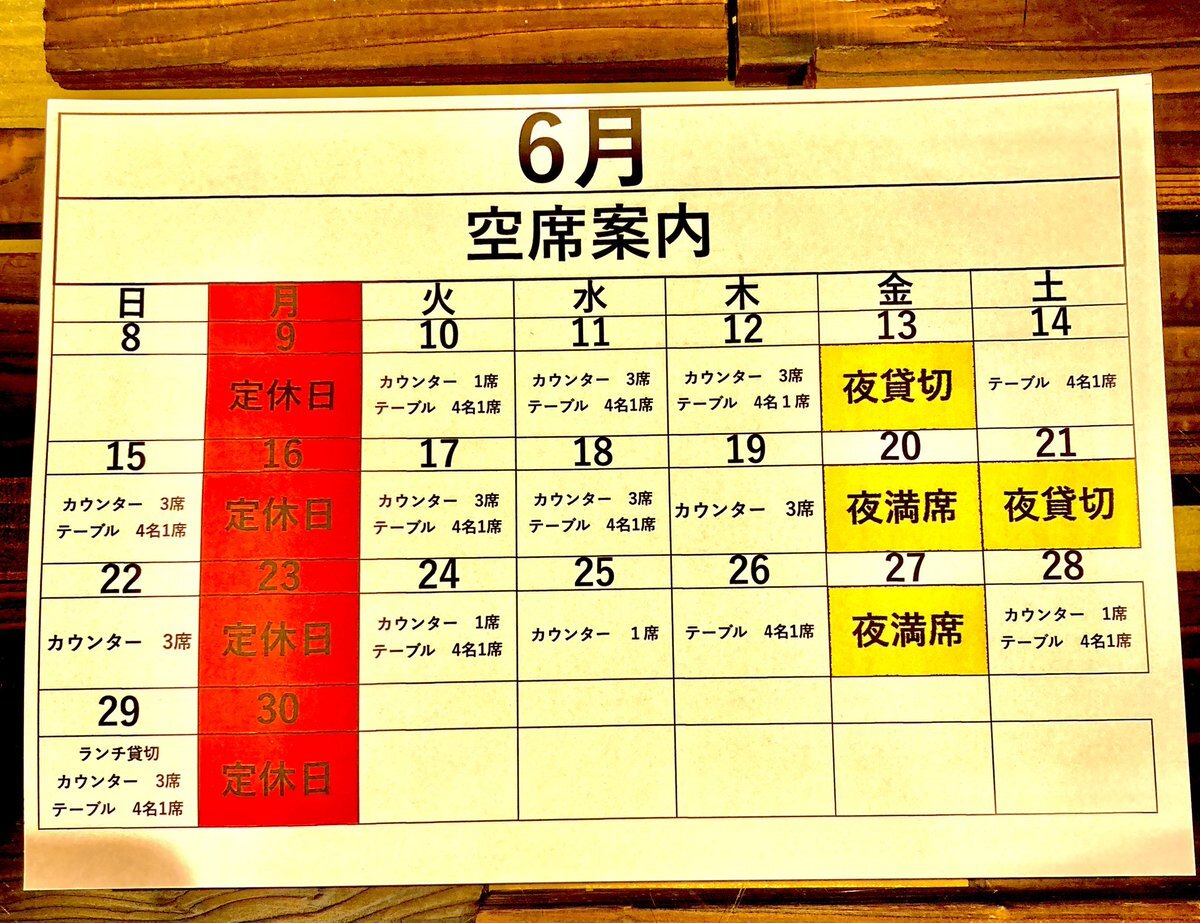 6月
空席案内
日 月 火 水 木 金 土
8 9 10 11 12 13 14
定休日
カウンター 1席
テーブル 4名1席
カウンター 3席
テーブル 4名1席
カウンター 3席
テーブル 4名１席
夜貸切
テーブル 4名1席
15 16 17 18 19 20 21
カウンター 3席
テーブル 4名1席
定休日
カウンター 3席
テーブル 4名1席
カウンター 3席
テーブル 4名1席
カウンター 3席
夜満席
夜貸切
22 23 24 25 26 27 28
カウンター 3席
定休日
カウンター 1席
テーブル 4名1席
カウンター １席
テーブル 4名1席
夜満席
カウンター 1席
テーブル 4名1席
29 30
ランチ貸切
カウンター 3席
テーブル 4名1席
定休日